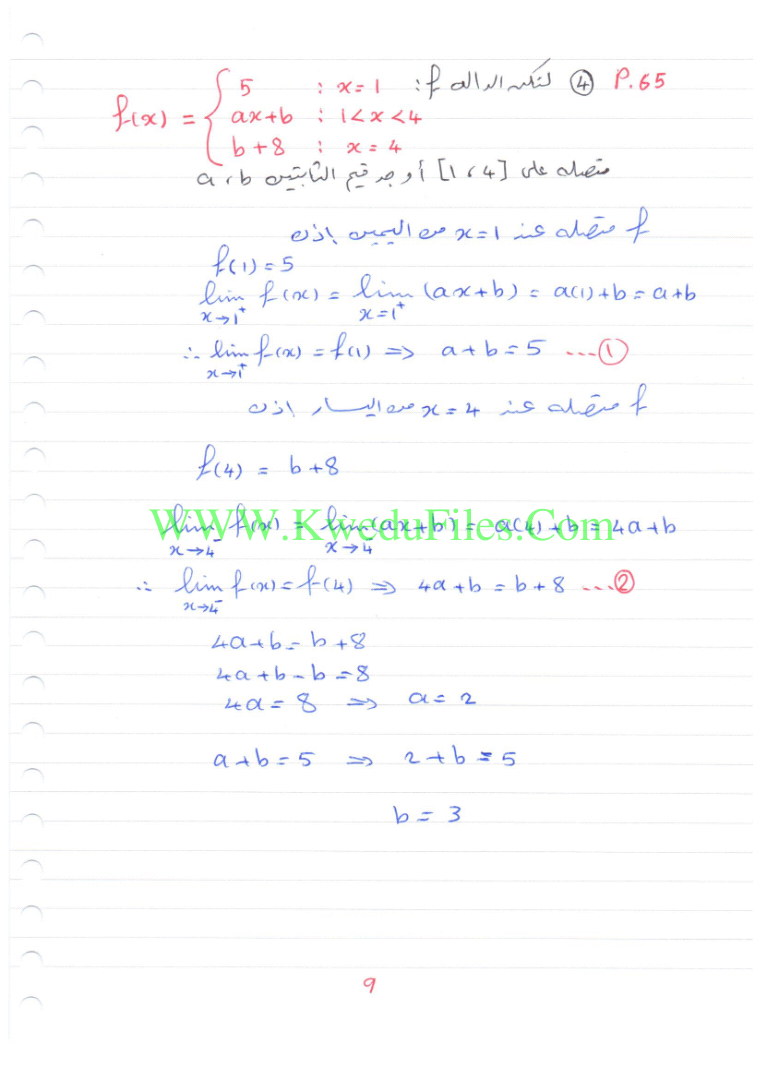 P.65 ④ لتكن الدالة f :
f(x) = { 5 : x = 1
ax+b : 1 < x < 4
b+8 : x = 4
متصلة على [1 ، 4] أوجد قيم الثابتين a ، b
f متصلة عند x=1 من اليمين إذن
f(1) = 5
lim f(x) = lim (ax+b) = a(1)+b = a+b
x→1⁺ x=1⁺
∴ lim f(x) = f(1) ⇒ a+b = 5 ---①
x→1⁺
f متصلة عند x=4 من اليسار إذن
f(4) = b+8
lim f(x) = lim (ax+b) = a(4)+b = 4a+b
WWW.KweduFiles.Com
x→4⁻ x→4
∴ lim f(x) = f(4) ⇒ 4a+b = b+8 ---②
x→4⁻
4a+b = b+8
4a+b-b = 8
4a = 8 ⇒ a = 2
a+b = 5 ⇒ 2+b = 5
b = 3
9